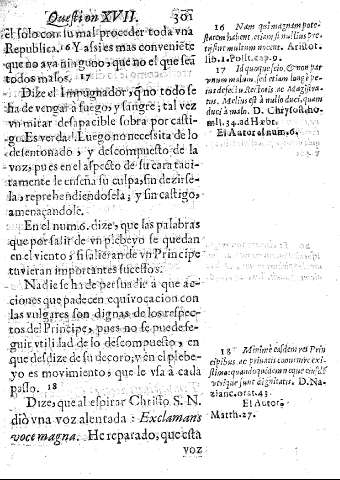 Question XVII. 301
el solo con su mal proceder toda vna
Republica. 16 Y assi es mas conveniēte
que no aya ninguno, que no el que sea
todos malos. 17
Dize el Impugnador, q̄ no todo se
ha de vengar à fuego, y sangre; tal vez
vn mirar desapacible sobra por casti-
go. Es verdad. Luego no necessita de lo
desentonado, y descompuesto de la
voz, pues en el aspecto de su cara taci-
tamente le enseña su culpa, sin dezirse-
la, reprehendiendosela; y sin castigo,
amenaçandole.
En el num. 6. dize, que las palabras
que por salir de vn plebeyo se quedan
en el viento; si salieran de vn Principe
tuvieran importantes sucessos.
Nadie se ha de persuadir à que ac-
ciones que padecen equivocacion con
las vulgares son dignas de los respec-
tos del Principe, pues no se puede se-
guir vtilidad de lo descompuesto, en
que desdize de su decoro; y en el plebe-
yo es movimiento, que le vsa à cada
passo. 18
Dize, que al espirar Christo S. N.
diò vna voz alentada: Exclamans
voce magna. He reparado, que esta
voz
16 Nam qui magnam pote-
statem habent, etiam si nullius pre-
tij sint multum nocent. Aristot.
lib. 2. Polit. cap. 9.
17 Id quoque scio, & non par-
vum malum, sed etiam longè pe-
ius
duci à malo. D. Chrysost. ho-
mil. 34. ad Hæbr.
El Autor el num. 6.
18 Minimè easdem vel Prin-
cipibus ac privatis convenire exi-
stimo: quando quidem
vtrique iunt dignitatis. D. Na-
zianc. orat. 43.
El Autor.
Matth. 27.